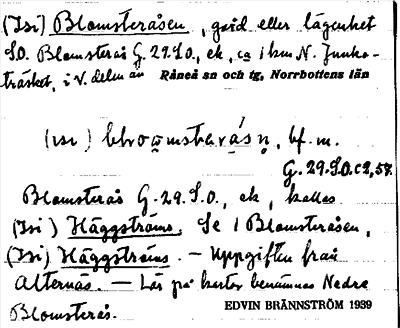 (Isi) Blomsteråsen, gård eller lägenhet
S.O. Blomsterås G. 29. S.O., ek., ca 1 km N. Junko-
träsket, i V. delen av Råneå sn och tg, Norrbottens län
(ısı) bf. m.
G. 29. S.O. c 2, 58.
Blomsterås G. 29. S.O., ek, kallas
(Isi) Häggströms. Se 1 Blomsteråsen,
(Isi) Häggströms. – Uppgiften från
Alternäs. – Lär på kartor benämnas Nedre
Blomsterås. EDVIN BRÄNNSTRÖM 1939